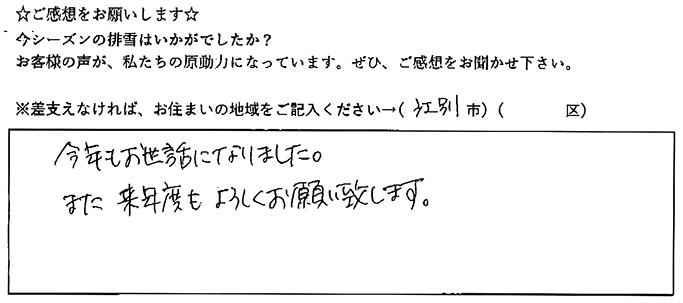 ☆ご感想をお願いします☆
今シーズンの排雪はいかがでしたか？
お客様の声が、私たちの原動力になっています。ぜひ、ご感想をお聞かせ下さい。
※差支えなければ、お住まいの地域をご記入ください→( 江別 市) (　　　区)
今年もお世話になりました。
また 来年度も よろしくお願い致します。